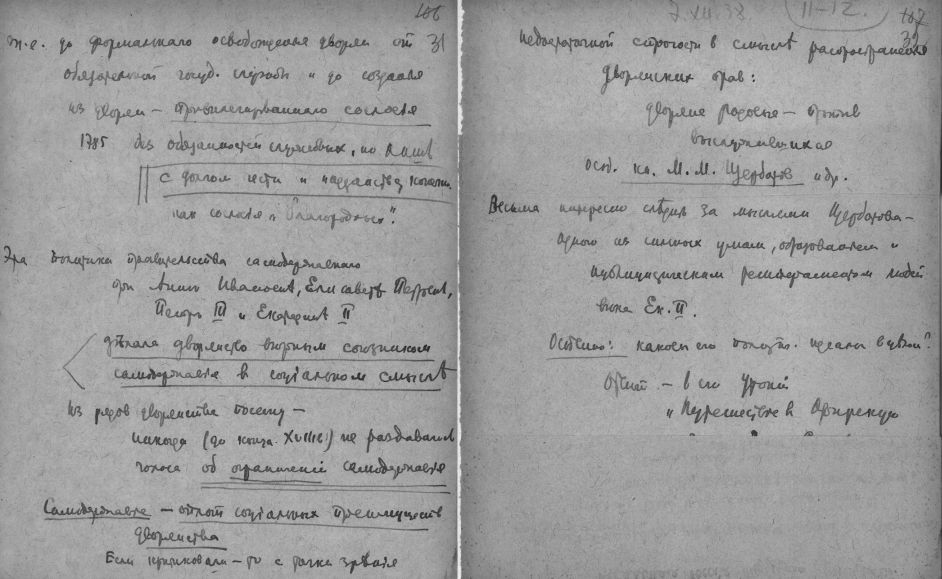 106
т.е. до формальнаго освобожденья дворян от 31
обязательной госуд. службы и до создания
из дворян – привилегированнаго сословия
1785 без обязанностей служебных, но лишь
с долгом чести и
как сословия "благородных".
Эта политика правительства самодержавнаго
при Анне Ивановне, Елисавете Петровне,
Петре III и Екатерине II
дѣлала дворянство вѣрным союзником
самодержавия в социальном смыслѣ
Из рядов дворянства посему –
никогда (до конца XVIII в.) не раздавались
голоса об ограничении самодержавия
Самодержавие – оплот социальных преимуществ
дворянства
Если критиковали – то с точки зрѣния
7.XII.38. II–IZ. 107
недостаточной строгости в смыслѣ распространения 32
дворянских прав:
дворяне родовые – против
выслужившихся
особ. кн. М. М. Щербатов и др.
Весьма интересно слѣдить за мыслями Щербатова –
одного из сильных умом, образованием и
публицистическим людей
вѣка Ек. II.
Особенно: каковы его политич. идеалы
Отвѣт – в его Утопии
"Путешествие в Офирскую